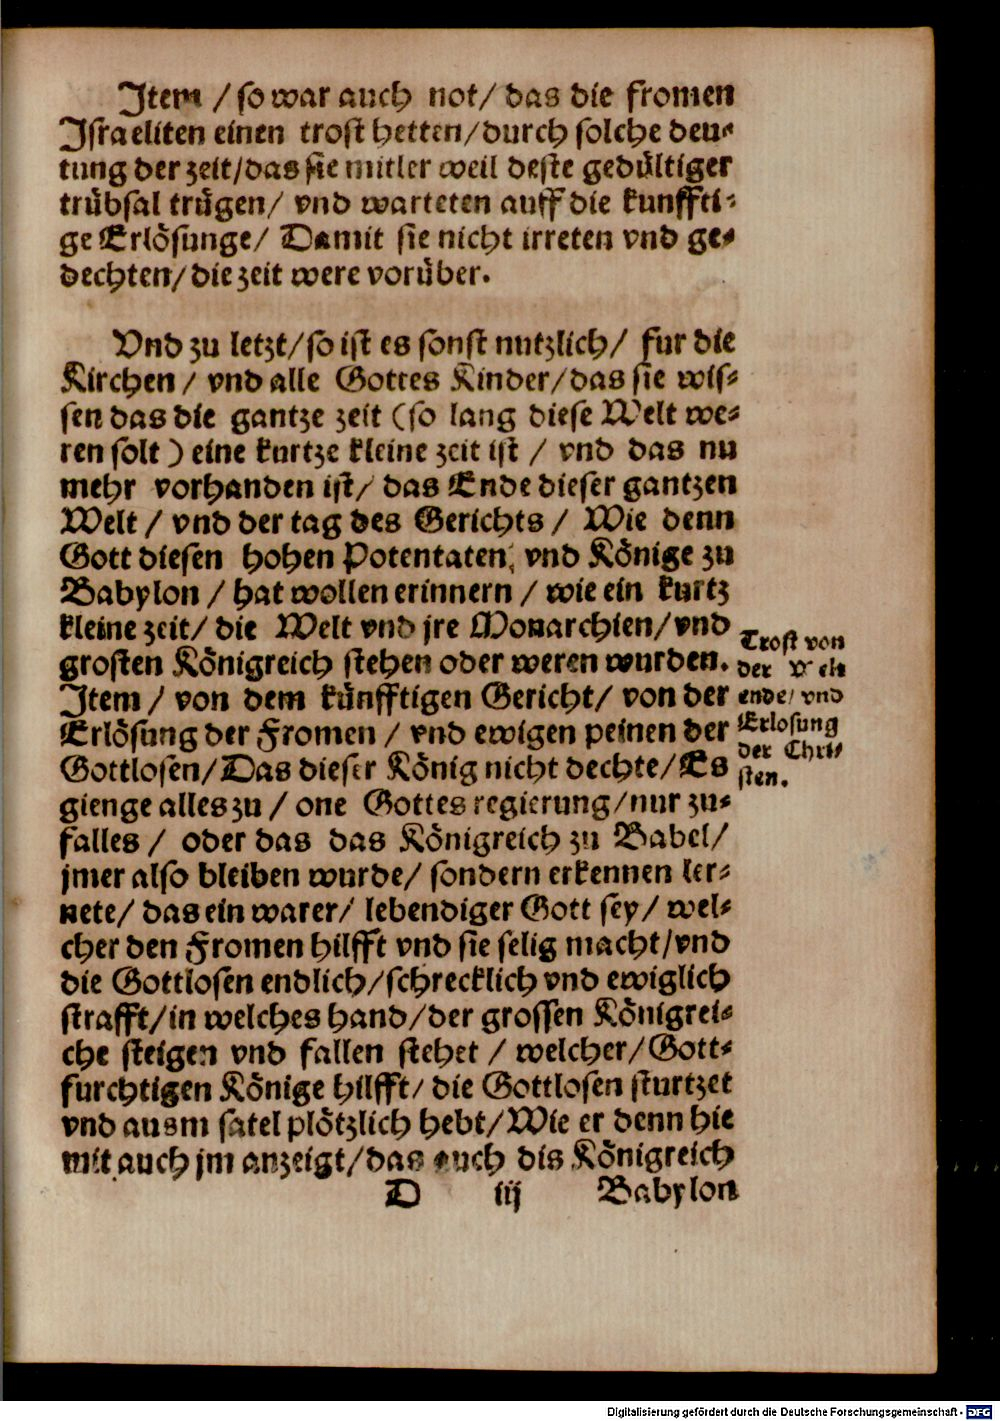 Jtem / so war auch not / das die fromen
Jsraeliten einen trost hetten / durch solche deu⸗
tung der zeit / das sie mitler weil deste gedültiger
trübsal trügen / vnd warteten auff die kunffti⸗
ge Erlösunge / Damit sie nicht irreten vnd ge⸗
dechten / die zeit were vorüber.
Vnd zu letzt / so ist es sonst nutzlich / fur die
Kirchen / vnd alle Gottes Kinder / das sie wis⸗
sen das die gantze zeit (so lang diese Welt we⸗
ren solt ) eine kurtze kleine zeit ist / vnd das nu
mehr vorhanden ist / das Ende dieser gantzen
Welt / vnd der tag des Gerichts / Wie denn
Gott diesen hohen Potentaten, vnd Könige zu
Babylon / hat wollen erinnern / wie ein kurtz
kleine zeit / die Welt vnd jre Monarchien / vnd
grosten Königreich stehen oder weren wurden.
Jtem / von dem künfftigen Gericht / von der
Erlösung der Fromen / vnd ewigen peinen der
Gottlosen / Das dieser König nicht dechte / Es
gienge alles zu / one Gottes regierung / nur zu⸗
falles / oder das das Königreich zu Babel /
jmer also bleiben wurde / sondern erkennen ler⸗
nete / das ein warer / lebendiger Gott sey / wel⸗
cher den Fromen hilfft vnd sie selig macht / vnd
die Gottlosen endlich / schrecklich vnd ewiglich
strafft / in welches hand / der grossen Königrei⸗
che steigen vnd fallen stehet / welcher / Gott⸗
furchtigen Könige hilfft / die Gottlosen sturtzet
vnd ausm satel plötzlich hebt / Wie er denn hie
mit auch jm anzeigt / das auch dis Königreich
D iij Babylon
Trost von
der Welt
ende / vnd
Erlosung
der Chri⸗
sten.
Digitalisierung gefördert durch die Deutsche Forschungsgemeinschaft - DFG